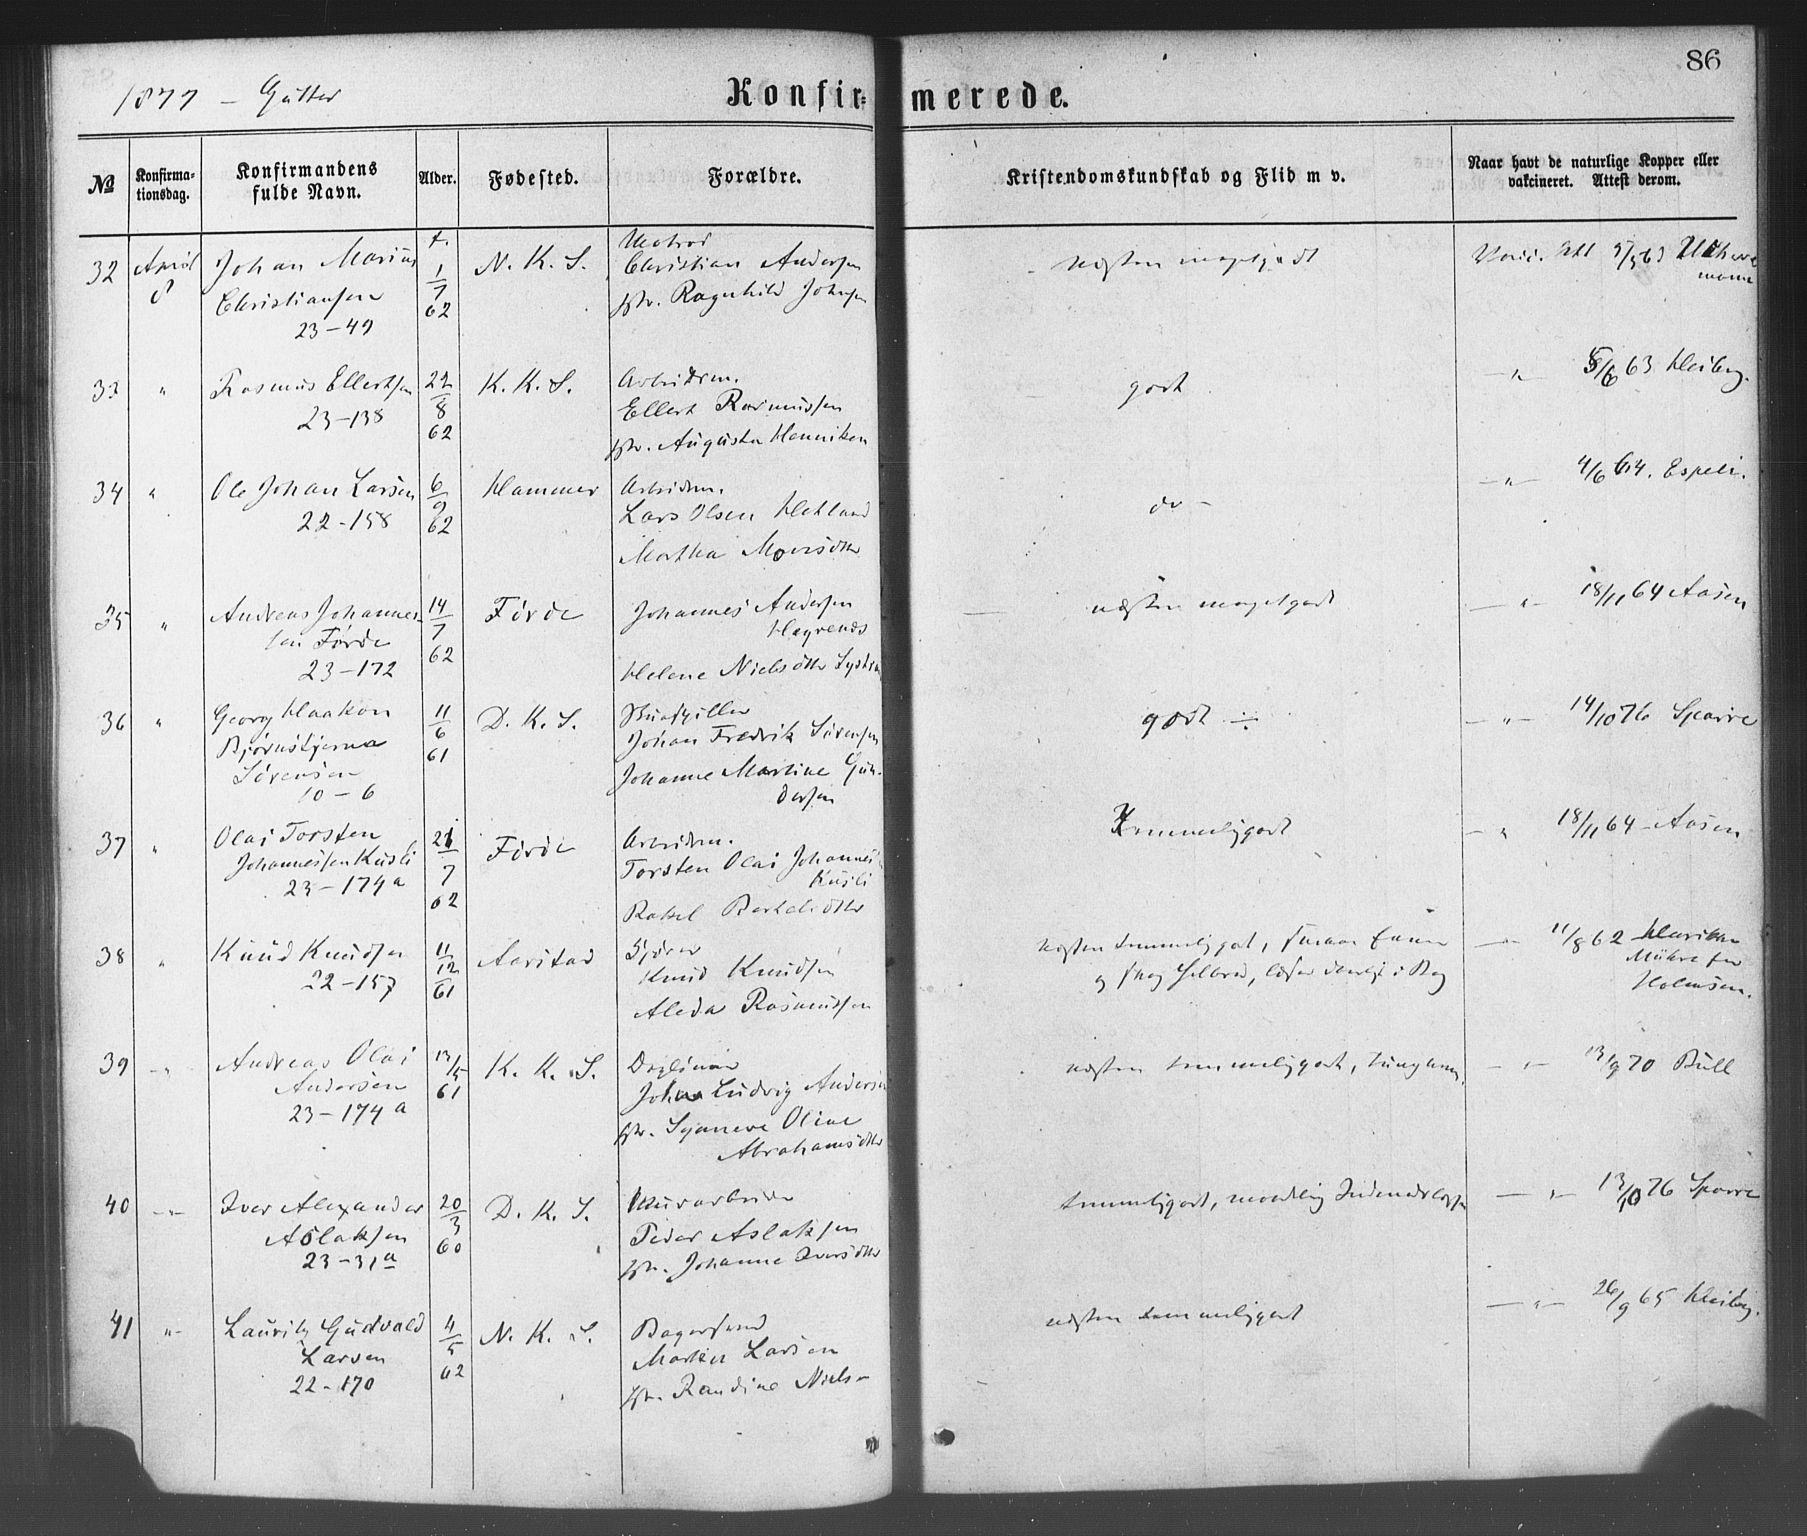 86
1877 – Gutter
Konfir-merede.
№
Konfirma-tionsdag.
Konfirmandens fulde Navn.
Alder.
Fødested.
Forældre.
Kristendomskundskab og Flid m v.
Naar havt de naturlige Kopper eller vakcineret. Attest derom.
32 April 8 Johan Marius Christiansen 23–49
1/7 62 N. K. S.
Matros
Christian Andersen
Ragnhild Johnsen
næsten megetgodt
33 " Rasmus Ellertsen 23–138
22/8 62 K. K. S.
Arbeidsm.
Ellert Rasmussen
Augusta Henriksen
godt
–"– 63 Heiberg.
34 " Ole Johan Larsen 22–158
6/9 62 Hammer
Arbeidsm.
Lars Olsen
Martha
do –
–"– 4/6 64. Espeli.
35 " Andreas Johannes-sen Førde 23–172
14/7 62 Førde
Johannes Andersen
Helene Nielsdttr
næsten megetgodt
–"– 18/11 64 Aasen
36 " Georg Haakon Bjørnstjerna Sørensen 10–6
11/6 61 D. K. S.
Johan Fredrik Sørensen
Johanne Martine Gun-dersen
godt ÷
–"– 14/10 76 Sparre
37 " Olai Torsten Johannessen Kusli 23–174a
7 62 Førde
Arbeidsm.
Torsten Olai Johannes Kusli
Rakel Bertelsdttr
Temmeliggodt
–"– 18/11 64 – Aasen
38 " Knud Knudsen 22–157
11/12 61 Aarstad
Knud Knudsen
Aleda Rasmussen
næsten temmeliggodt,
og
–"– 11/8 62
Holmsen.
39 –"– Andreas Olai Andersen 23–174a
13/5 61 K. K. S.
Johan Ludvig Andersen
Synneve Oline
Abrahamsdttr
næsten temmeliggodt, tungnem.
–"– 13/9 70 Bull
40 –"– Iver Alexander Aslaksen 23–31a
20/3 60 D. K. S.
Murarbeider
Peder Aslaksen
Johanne Iversdttr
temmeliggodt, maadelig
–"– 13/10 76 Sparre
41 –"– Lauritz Gudvald Larsen 22–170
4/5 62 N. K. S.
Bagersvend
Larsen
Randine Niels
næsten temmeliggodt
–"– 26/9 65 Heiberg.